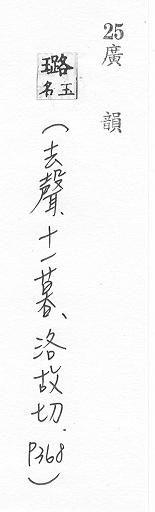 25
廣韻
璐玉名
(去聲、十一暮、洛故切. P368)